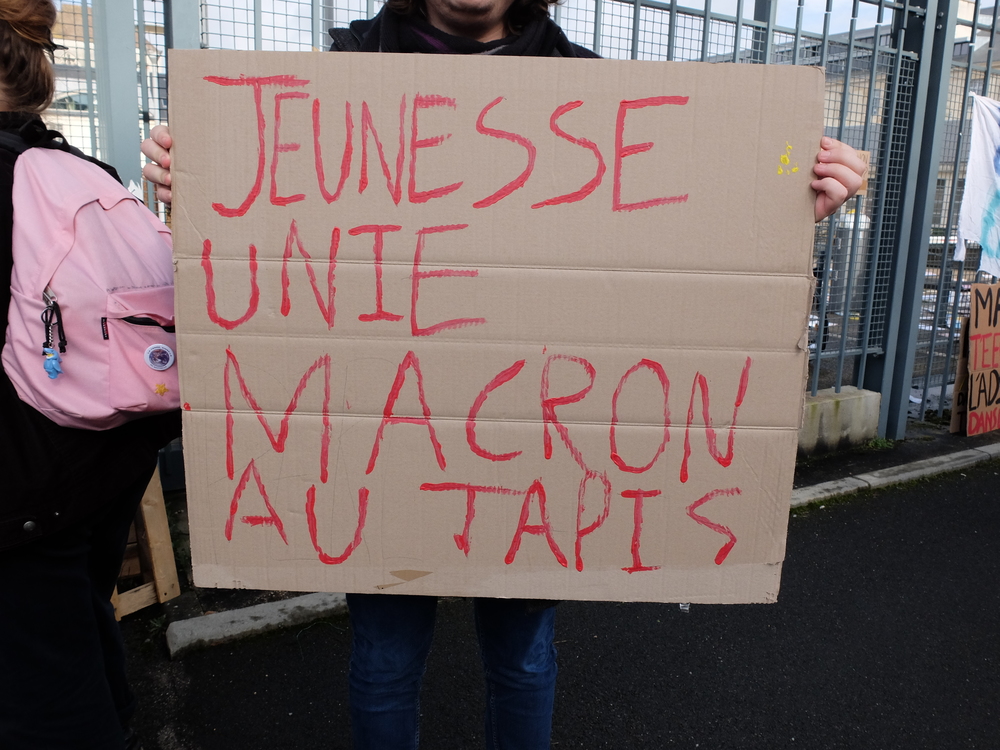 JEUNESSE
UNIE
MACRON
AU TAPIS
MA
L'AD
DANS